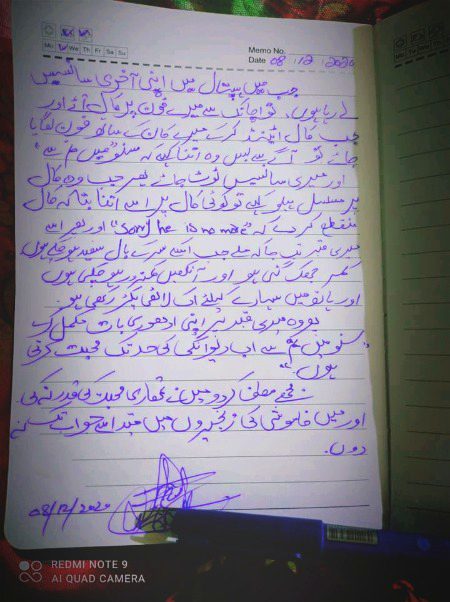 Mo Tu We Th Fr Sa Su
Memo No.
Mo Tu We Th Fr Sa Su
Date 08 / 12 / 2020
جب میں ہسپتال میں اپنی آخری سانسیں
لے رہا ہوں، تو اچانک سے میرے فون پر کال آئے اور
جب کال اٹینڈ کر کے میرے کان کے ساتھ فون لگایا
جائے تو آگے سے بس وہ اتنا کہے کہ "سنو میں تم سے"
اور میری سانسیں ٹوٹ جائے پھر جب وہ کال
پر مسلسل ہیلو کہے تو کوئی کال پر اسے اتنا بتا کہ کال
منقطع کر دے کہ "Sorry he is no more" اور پھر اسے
میری قبر تب جا کہ ملے جب اسکے سر کے بال سفید ہو چکے ہوں
کمر جھک گئی ہو اور آنکھیں کمزور ہو چکی ہوں
اور ہاتھ میں سہارے کیلئے اک لاٹھی پکڑ رکھی ہو۔
پھر وہ میری قبر پر اپنی ادھوری بات مکمل کرے
"سنو میں تم سے اب دیوانگی کی حد تک محبت کرتی
ہوں"
مجھے معاف کر دو میں نے تمھاری محبت کی قدر نہ کی
اور میں خاموشی کی زنجیروں میں قید اسے جواب تک نہ
دوں۔
08/12/2020
REDMI NOTE 9
AI QUAD CAMERA